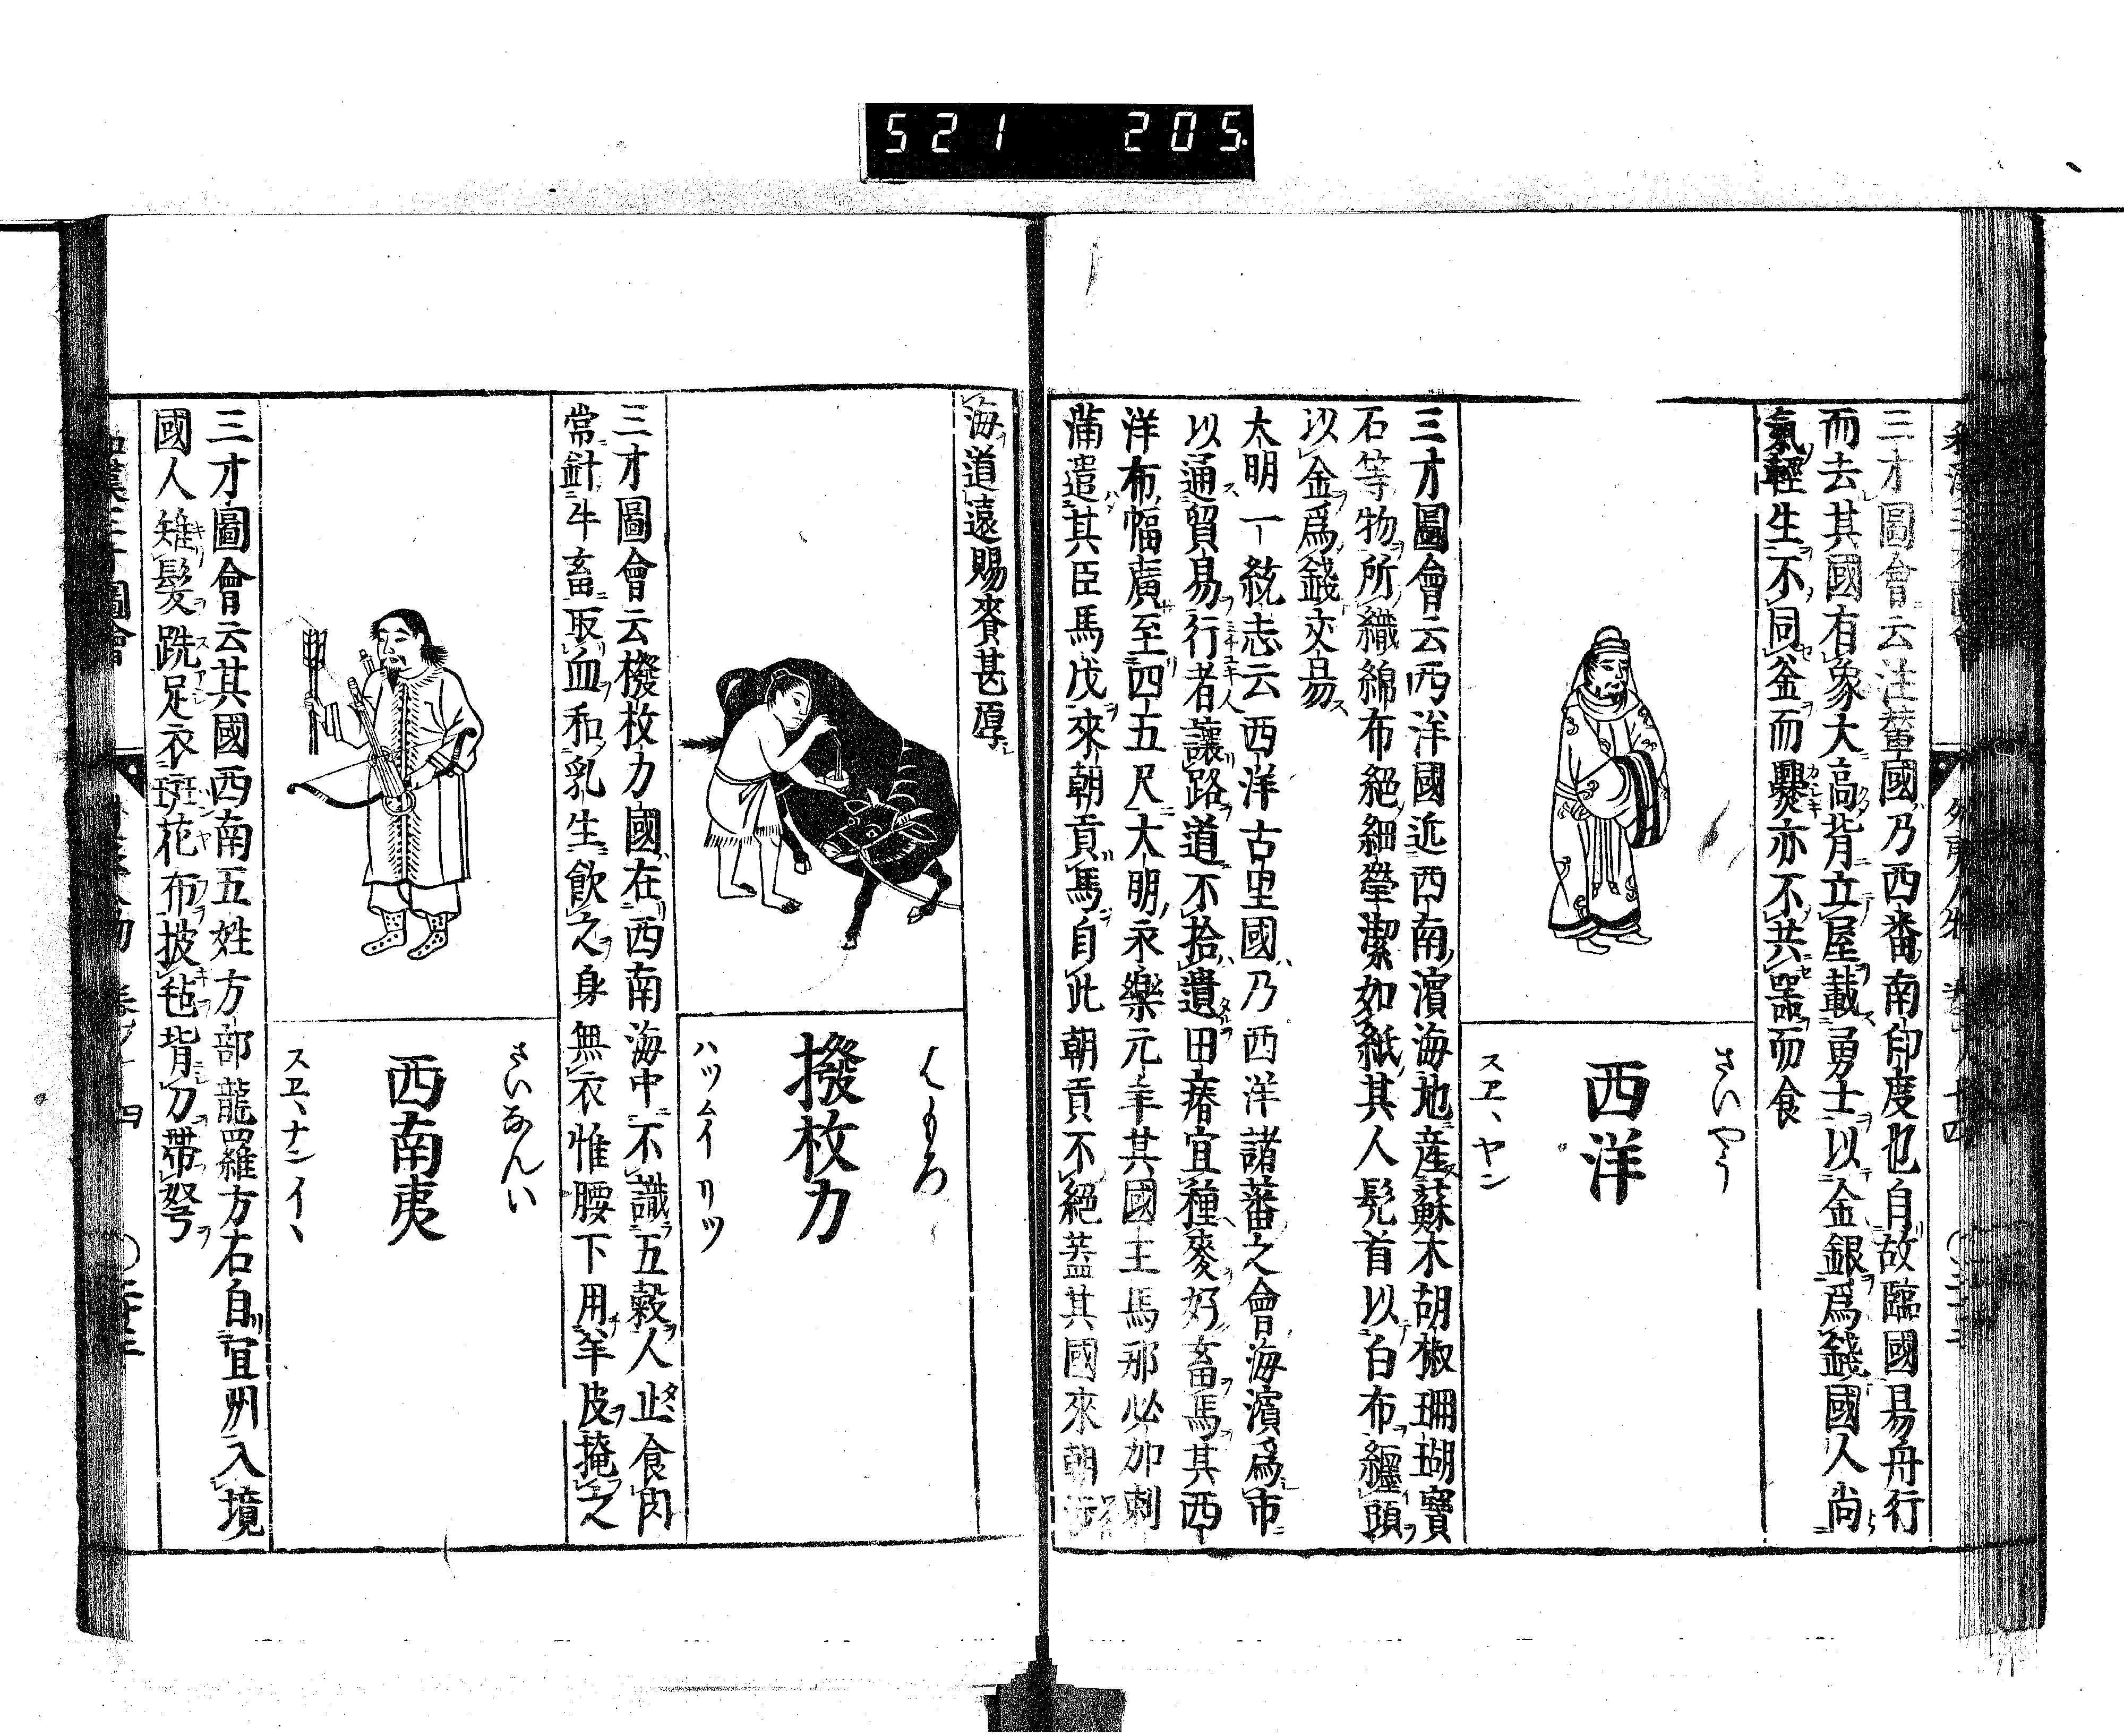 521 205.
三才圖會云注輦國乃西番南印度也自故臨國易舟行
而去其國有象大高背立屋載勇士以金銀爲錢國人尚
氣輕生不同釜而爨亦不共器而食
さいやう
西洋
スヱ、ヤン
三才圖會云西洋國近西南濱海地産蘇木胡椒珊瑚寳
石等物所織綿布絕細瑩潔如紙其人髠首以白布纒頭
以金爲錢交易
大明一統志云西洋古里國乃西洋諸蕃之會海濱爲市
以通貿易行者讓路道不拾遺田瘠宜種麥好畜馬其西
洋布幅廣至四五尺大明永樂元年其國王馬那必加刺
滿遣其臣馬戊來朝貢馬自此朝貢不絕蓋其國來朝
海道遠賜賚甚厚
はもろ
撥枚力
ハツムイリツ
三才圖會云撥枚力國在西南海中不識五穀人止食肉
常針牛畜取血和乳生飮之身無衣惟腰下用羊皮掩之
さいなんい
西南夷
スヱ、ナンイ、
三才圖會云其國西南五姓方部龍羅方右自宜州入境
國人雉髮跣足衣斑花布披毡背刀帶弩